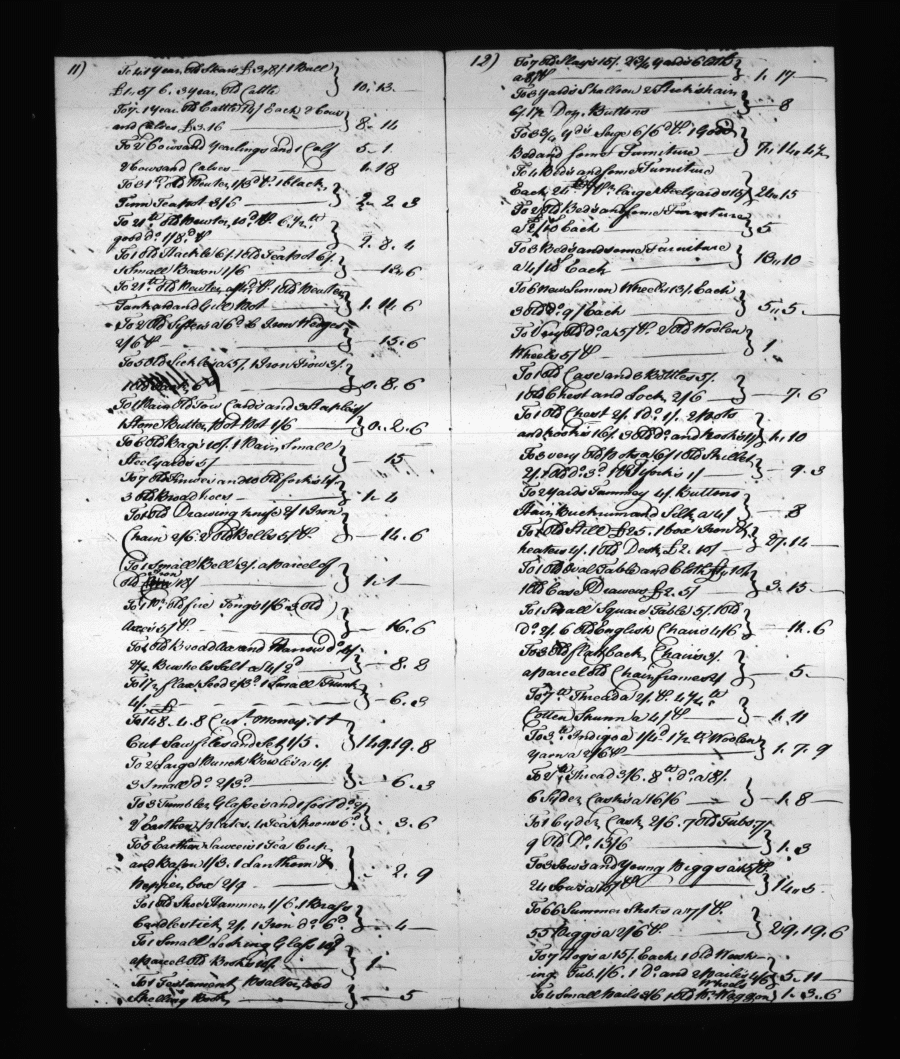 11)
To 4 1 Year Old Stears £3,,8/ 1 Bull
£1..5/ 6.. 3 year Old Cattle 10..13..
To 7. 1 Year Old Cattle 12/ Each 2 Cows
and Calves £3.16 8..14
To 2 Cows and Yearlings and 1 Calf 5..1.
2 Cows and Calves 4..18
To 31 lb Old Pewter, 1/3 lb. 1 black,
Tinn Teapot 3/6 2..2..3
To 21 lb Old Pewter, 10d lb
good do. 1/8d lb 2.8.4
To 1 Old Stackle 6/. 1 Old Teapot 6/.
1 Small Bason 1/6 13..6
To 21 lb Old Pewter, 1 Old Pewter
Tankard and Gill Pot 1.11.6
To 2 Old Sifters a 6d & Iron Wedges
2/6 lb 15.6
To 5 Old Sickles a 5/. 1 Iron 3/.
1 Old 6d 0.8.6
To 1 Pair Old Tow Cards and 3 Staples
1 Stone Butter Pot 1/6 0..2..6
To 6 Old Bags 10/. 1 Pair Small
Steelyards 5/ 15
To 7 Old and 10 Old forks
3 Old Broad hoes 1..4
To 1 Old Drawing knife 2/ 1 Iron
Chain 2/6. 2 Old Bells 5/ lb. 14.6
To 1 Small Bell 3/. a parcel of
Old Iron 18/ 1..1
To 1 Pr. Old fire Tongs 1/6. 3 Old
Axes 5/ lb 16.6
To 1 Old broad axe and Narrow do 4/.
2½ Bushels Salt a 1/2d 8..8
To 1½ flax Seed 2/3. 1 Small Trunk
4/. 6..3
To 148..4.8 Curt. Money
Cut Saw files and Set 1/5. 149.19.8
To 2 Large Punch Bowls a 4/.
3 Small do. 2/3d 6..3
To 3 Tumbler Glasses and 1 foot do. 2/
2 Earthen plates. 4 Tea Spoons 6d 3.6
To 5 Earthen Saucers 1 Tea Cup
and Bason 1/3. 1 Lanthorn &
Pepper box 2/9 2..9
To 1 Old Shoe Hammer 1/6. 1 Brass
Candlestick, 2/. 1 Iron do. 6d 4
To 1 Small Looking Glass 10/
a parcel Old Books 10/. 1
To 1 Testament Psalter, and
Spelling Book 5
12)
To 7 Old Slays 15/. 2¾ Yards Cloth
a 8/ lb 1..17
To 3 Yards Shelloon 2 Sticks hair
6/. 1½ Doz. Buttons 8
To 3¾ Yds Serge 6/6d lb. 1 Good
Bed and some Furniture
To 4 Beds and some Furniture
Each, large Steelyards 15/ 24..15
To 2 Old Beds and some Furniture
a Each 5
To 3 Beds and some Furniture
a 4/10 Each 13..10
To 6 New Linnen Wheels 13/. Each
3 Old do. 9/ Each 5..5
To 3 Very Old do. a 5/ lb 2 Old Woolen
Wheels 5/ lb 1
To 1 Old Case and 8 Bottles 5/.
1 Old Chest and Lock, 2/6 7.6
To 1 Old Chest 2/. 1 do. 1/. 2 pots
and hooks 16/. 3 Old do. and hooks 11/ 1..10
To 3 very Old pots a 6/ 1 Old Skillet
2/. 1 Old do. 3d 1/ 9..3
To 2 Yards Tammey 4/. Buttons
Stain Buckrum and Silk a 4/ 8
To 1 Old Still £25.. 1 box Iron &
heaters 4/. 1 Old Desk £2..10/ 27.14
To 1 Old Oval Table and Cloth
1 Old Case Drawers £2..5/ 3..15
To 1 Small Square Table 5/. 1 Old
do. 2/. 6 Old English Chairs 4/6 11..6
To 3 Old flatback Chairs 3/.
a parcel old Chair frames 2/ 5
To 7 lb Thread a 2/. lb. 4¼ lb
Cotten Spunn a 4/ lb 1..11
To 3 lb Indigo a 1/4d. 1½ lb Woolen
Yarn a 2/6 lb 1.7.9
To 2 lb Thread 3/6. 8 lb do. a 3/.
6 Syder Casks a 16/6 1..8
To 1 Cyder Cask 2/6. 7 Old Tubs 7/.
9 Old Do. 13/6 1..3
To 3 Sows and Young Piggs a 15/ lb.
24 Sows a 10/ lb 14..5
To 66 Summer Shotes a 7/ lb.
55 Piggs a 2/6 lb 29.19.6
To 7 Hogs a 15/. Each. 1 Old Wash
ing Tub. 1/6. 1 do. and 2 Pails 4/6 5..11
Wheels
To 4 Small Pails 3/6 1 Old Pr. Waggon 1..3..6